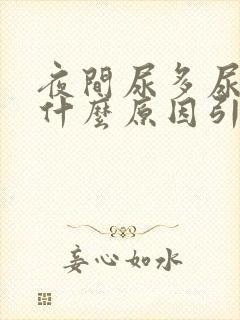 夜間尿多尿
什麼原因引
妄心如水